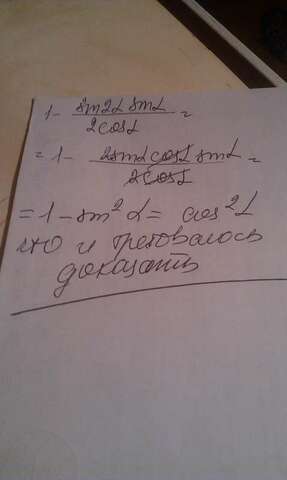 1 - sin2α sinα / 2cosα =
= 1 - 2sinα cosα sinα / 2cosα =
= 1 - sin² α = cos² α
что и требовалось
доказать